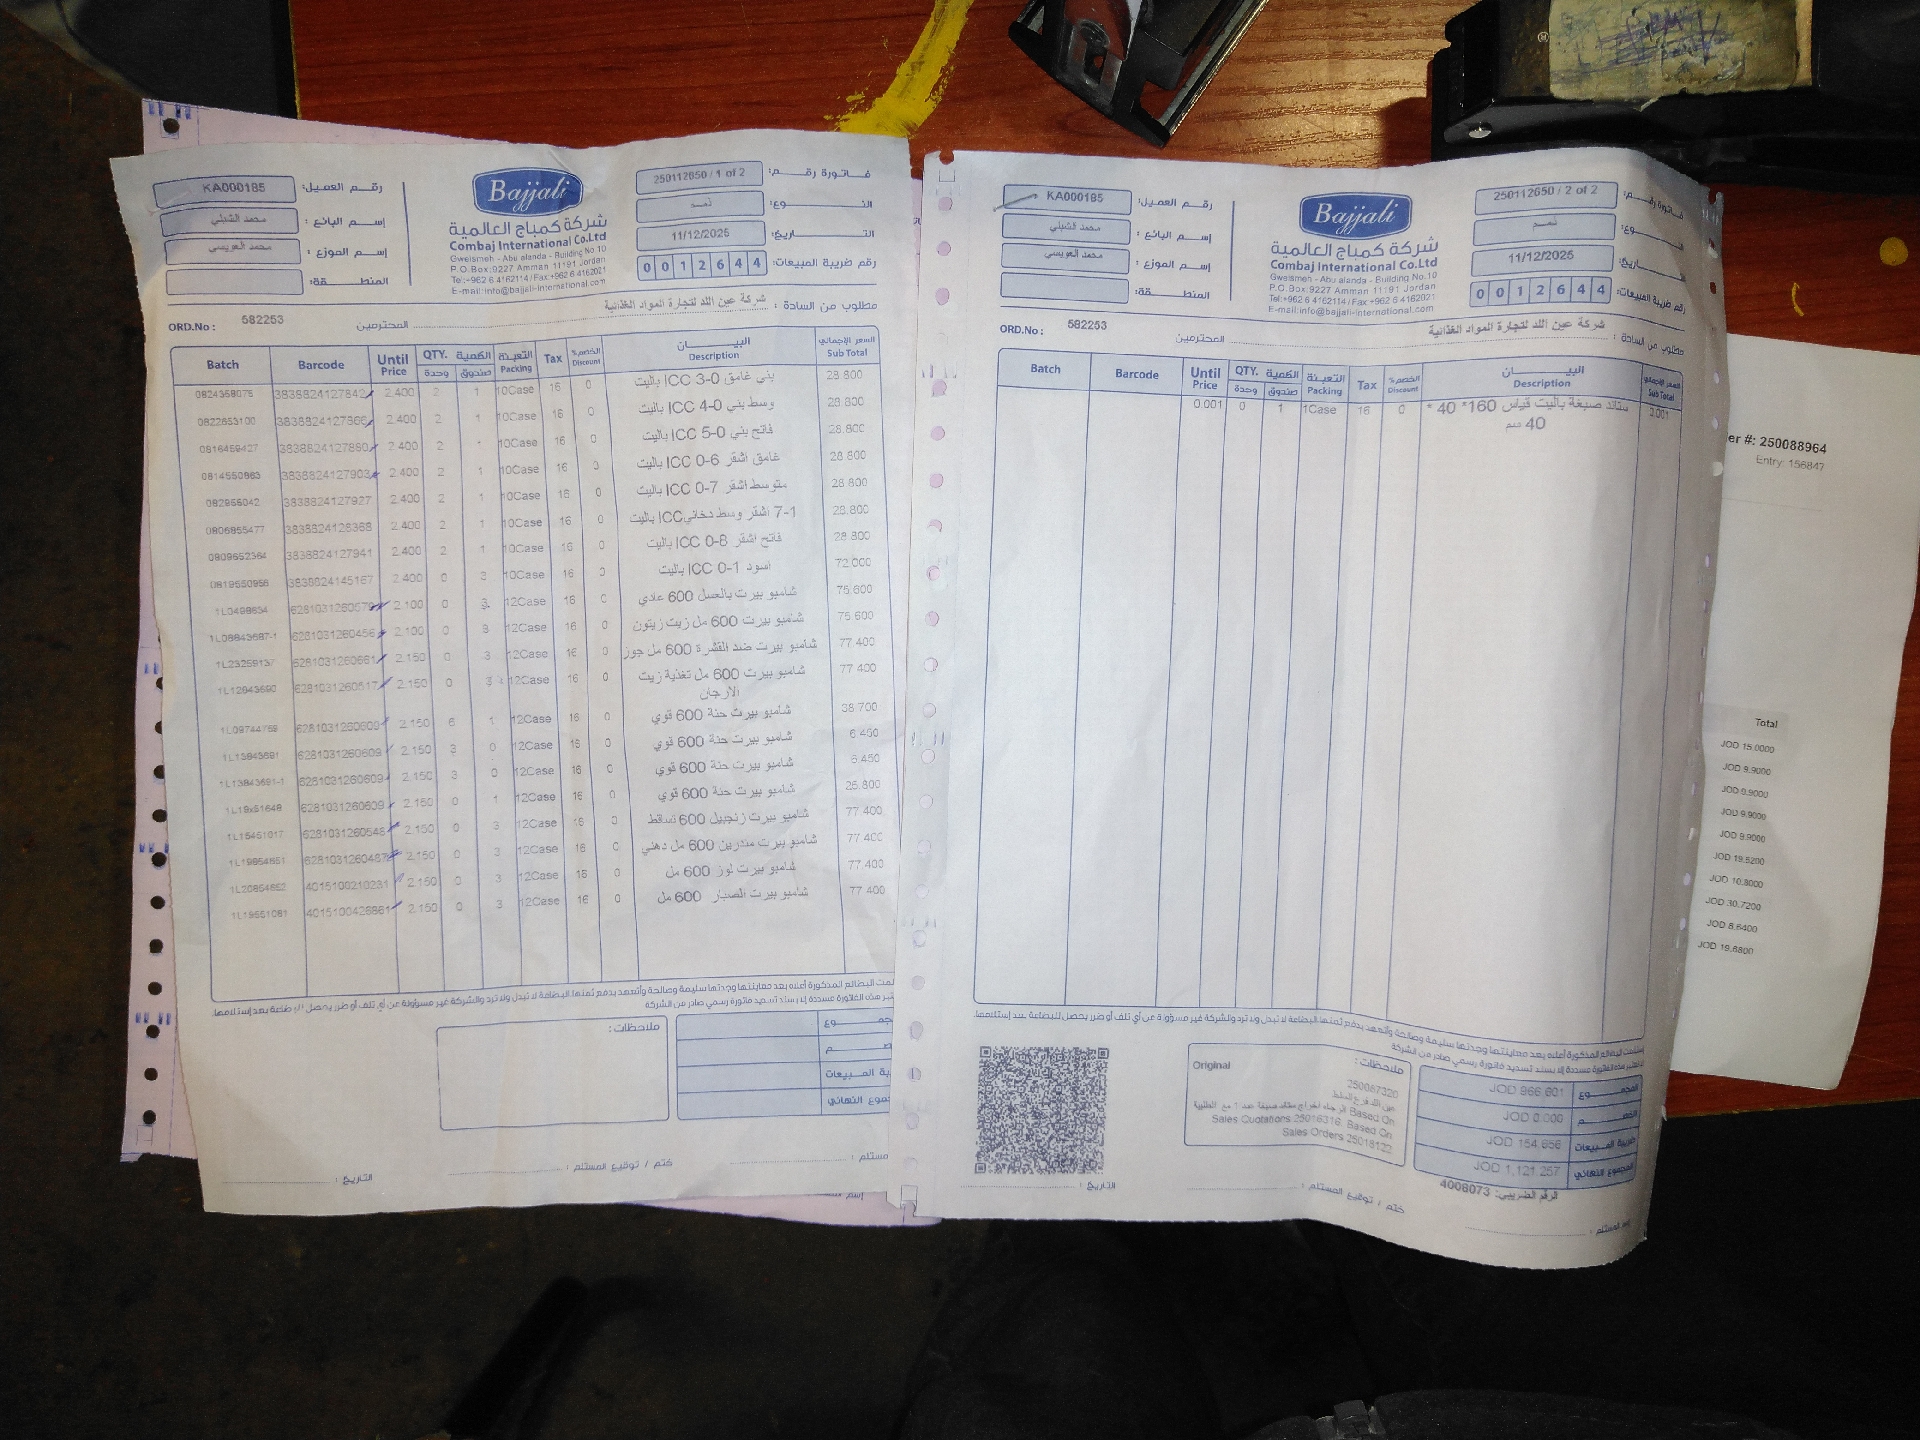 KA000185
رقم العميل:
محمد الشبلي
إسم البائع :
محمد العويسي
إسم الموزع :
المنطقة:
Bajjali
شركة كمباج العالمية
Combaj International Co.Ltd
Gweismeh - Abu alanda - Building No.10
P.O.Box:9227 Amman 11191 Jordan
Tel:+962 6 4162114 / Fax:+962 6 4162021
E-mail:info@bajjali-international.com
فاتورة رقم: 250112650 / 1 of 2
النوع:
التاريخ: 11/12/2025
رقم ضريبة المبيعات: 0012644
مطلوب من السادة : شركة عين اللد لتجارة المواد الغذائية المحترمين
ORD.No : 582253
Batch Barcode Until Price QTY. الكمية وحدة صندوق التعبئة Packing Tax الخصم% Discount البيـــان Description السعر الإجمالي Sub Total
3838824127842 2.400 2 1 10Case 16 0 بني غامق ICC 3-0 باليت 28.800
2.400 2 1 10Case 16 0 وسط بني ICC 4-0 باليت 28.800
0816459427 3838824127880 2.400 2 1 10Case 16 0 فاتح بني ICC 5-0 باليت 28.800
0814550863 3838824127903 2.400 2 1 10Case 16 0 غامق اشقر ICC 0-6 باليت 28.800
3838824127927 2.400 2 1 10Case 16 0 متوسط اشقر ICC 0-7 باليت 28.800
0806855477 3838824128368 2.400 2 1 10Case 16 0 7-1 اشقر وسط دخاني ICC باليت 28.800
0809652364 3838824127941 2.400 2 1 10Case 16 0 فاتح اشقر ICC 0-8 باليت 28.800
0819550956 3838824145167 2.400 0 3 10Case 16 0 اسود ICC 0-1 باليت 72.000
6281031260579 2.100 0 3 12Case 16 0 شامبو بيرت بالعسل 600 عادي 75.600
1L08843687-1 6281031260456 2.100 0 3 12Case 16 0 شامبو بيرت 600 مل زيت زيتون 75.600
1L23259137 6281031260661 2.150 0 3 12Case 16 0 شامبو بيرت ضد القشرة 600 مل جوز 77.400
1L12843690 6281031260517 2.150 0 3 12Case 16 0 شامبو بيرت 600 مل تغذية زيت 77.400
الارجان
1L09744769 6281031260609 2.150 6 1 12Case 16 0 شامبو بيرت حنة 600 قوي 38.700
1L13843691 6281031260609 2.150 3 0 12Case 16 0 شامبو بيرت حنة 600 قوي 6.450
1L13843691-1 6281031260609 2.150 3 0 12Case 16 0 شامبو بيرت حنة 600 قوي 6.450
6281031260609 2.150 0 1 12Case 16 0 شامبو بيرت حنة 600 قوي 25.800
1L15451017 6281031260548 2.150 0 3 12Case 16 0 شامبو بيرت زنجبيل 600 تساقط 77.400
1L19854651 6281031260487 2.150 0 3 12Case 16 0 شامبو بيرت مندرين 600 مل دهني 77.400
1L20854652 4015100210231 2.150 0 3 12Case 16 0 شامبو بيرت لوز 600 مل 77.400
1L19551081 4015100426861 2.150 0 3 12Case 16 0 شامبو بيرت الصبار 600 مل 77.400
ملاحظات :
ختم / توقيع المستلم :
التاريخ :
KA000185
رقم العميل:
محمد الشبلي
إسم البائع :
محمد العويسي
إسم الموزع :
المنطقة:
Bajjali
شركة كمباج العالمية
Combaj International Co.Ltd
Gweismeh - Abu alanda - Building No.10
P.O.Box:9227 Amman 11191 Jordan
Tel:+962 6 4162114 / Fax:+962 6 4162021
E-mail:info@bajjali-international.com
250112650 / 2 of 2
11/12/2025
رقم ضريبة المبيعات: 0012644
مطلوب من السادة : شركة عين اللد لتجارة المواد الغذائية المحترمين
ORD.No : 582253
Batch Barcode Until Price QTY. الكمية وحدة صندوق التعبئة Packing Tax الخصم% Discount البيـــان Description السعر الإجمالي Sub Total
0.001 0 1 1Case 16 0 ستاند صبغة باليت قياس 160* 40 * 0.001
40 سم
إستلمت البضائع المذكورة أعلاه بعد معاينتها وجدتها سليمة وصالحة وأتعهد بدفع ثمنها البضاعة لا تبدل ولا ترد والشركة غير مسؤولة عن أي تلف أو ضرر يحصل للبضاعة بعد إستلامها.
لا تعتبر هذه الفاتورة مسددة إلا بسند تسديد فاتورة رسمي صادر من الشركة
ملاحظات :
Original
250087320
Based On الرجاء اخراج ستاند صبغة عدد 1 مع الطلبية
Sales Quotations 25016316. Based On
Sales Orders 25018122.
المجموع JOD 966.601
الخصم JOD 0.000
ضريبة المبيعات JOD 154.656
المجموع النهائي JOD 1,121.257
الرقم الضريبي: 4008073
إسم المستلم :
ختم / توقيع المستلم :
التاريخ :
er #: 250088964
Entry: 156847
Total
JOD 15.0000
JOD 9.9000
JOD 9.9000
JOD 9.9000
JOD 9.9000
JOD 19.9200
JOD 10.8000
JOD 30.7200
JOD 8.6400
JOD 19.6800